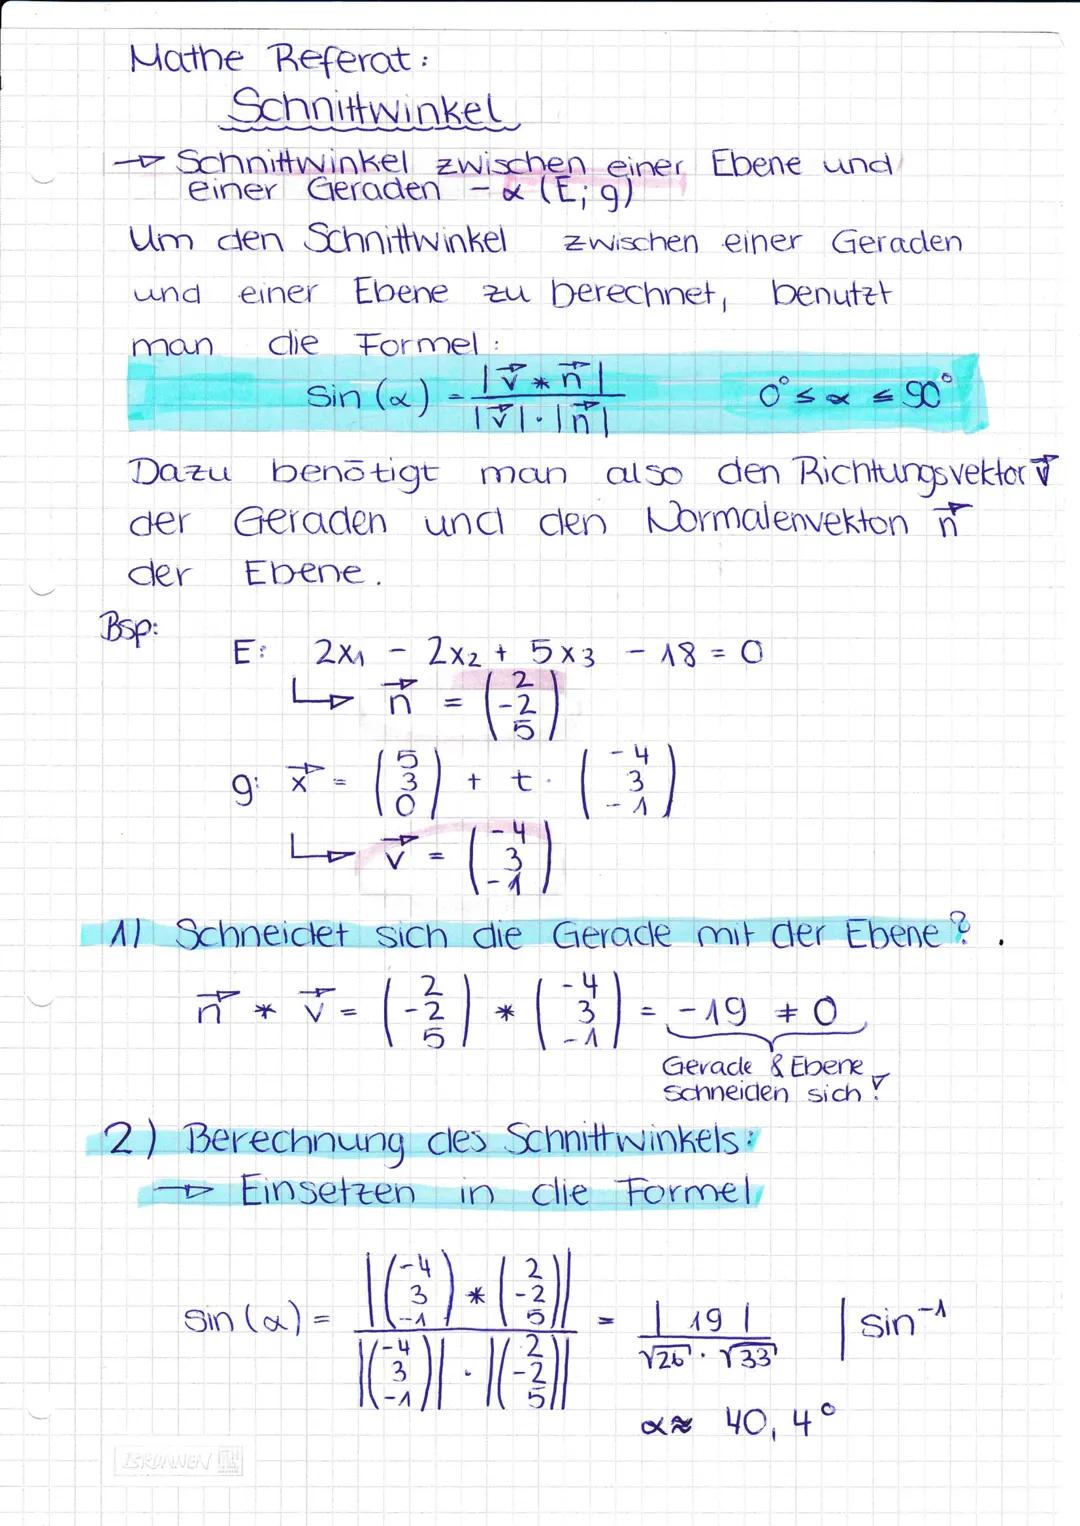 Mathe Referat:
Schnittwinkel
→ Schnittwinkel zwischen einer Ebene und
einer Geraden - α (E; g)
Um den Schnittwinkel zwischen einer Geraden
und einer Ebene zu berechnet, benutzt
man die Formel:
sin (α) = |v⃗ * n⃗| / |v⃗| · |n⃗| 0° ≤ α ≤ 90°
Dazu benötigt man also den Richtungsvektor v⃗
der Geraden und den Normalenvekton n⃗
der Ebene.
Bsp:
E: 2x₁ - 2x₂ + 5x₃ - 18 = 0
↳ n⃗ = (2 -2 5)
g: x⃗ = (5 3 0) + t · (-4 3 -1)
↳ v⃗ = (-4 3 -1)
1) Schneidet sich die Gerade mit der Ebene?
n⃗ * v⃗ = (2 -2 5) * (-4 3 -1) = -19 ≠ 0
Gerade & Ebene
schneiden sich!
2) Berechnung des Schnittwinkels:
→ Einsetzen in die Formel
sin (α) = |(-4 3 -1) * (2 -2 5)| / |(-4 3 -1)| · |(2 -2 5)| = |19| / √26 · √33 | sin⁻¹
α ≈ 40,4°
BRUNNEN